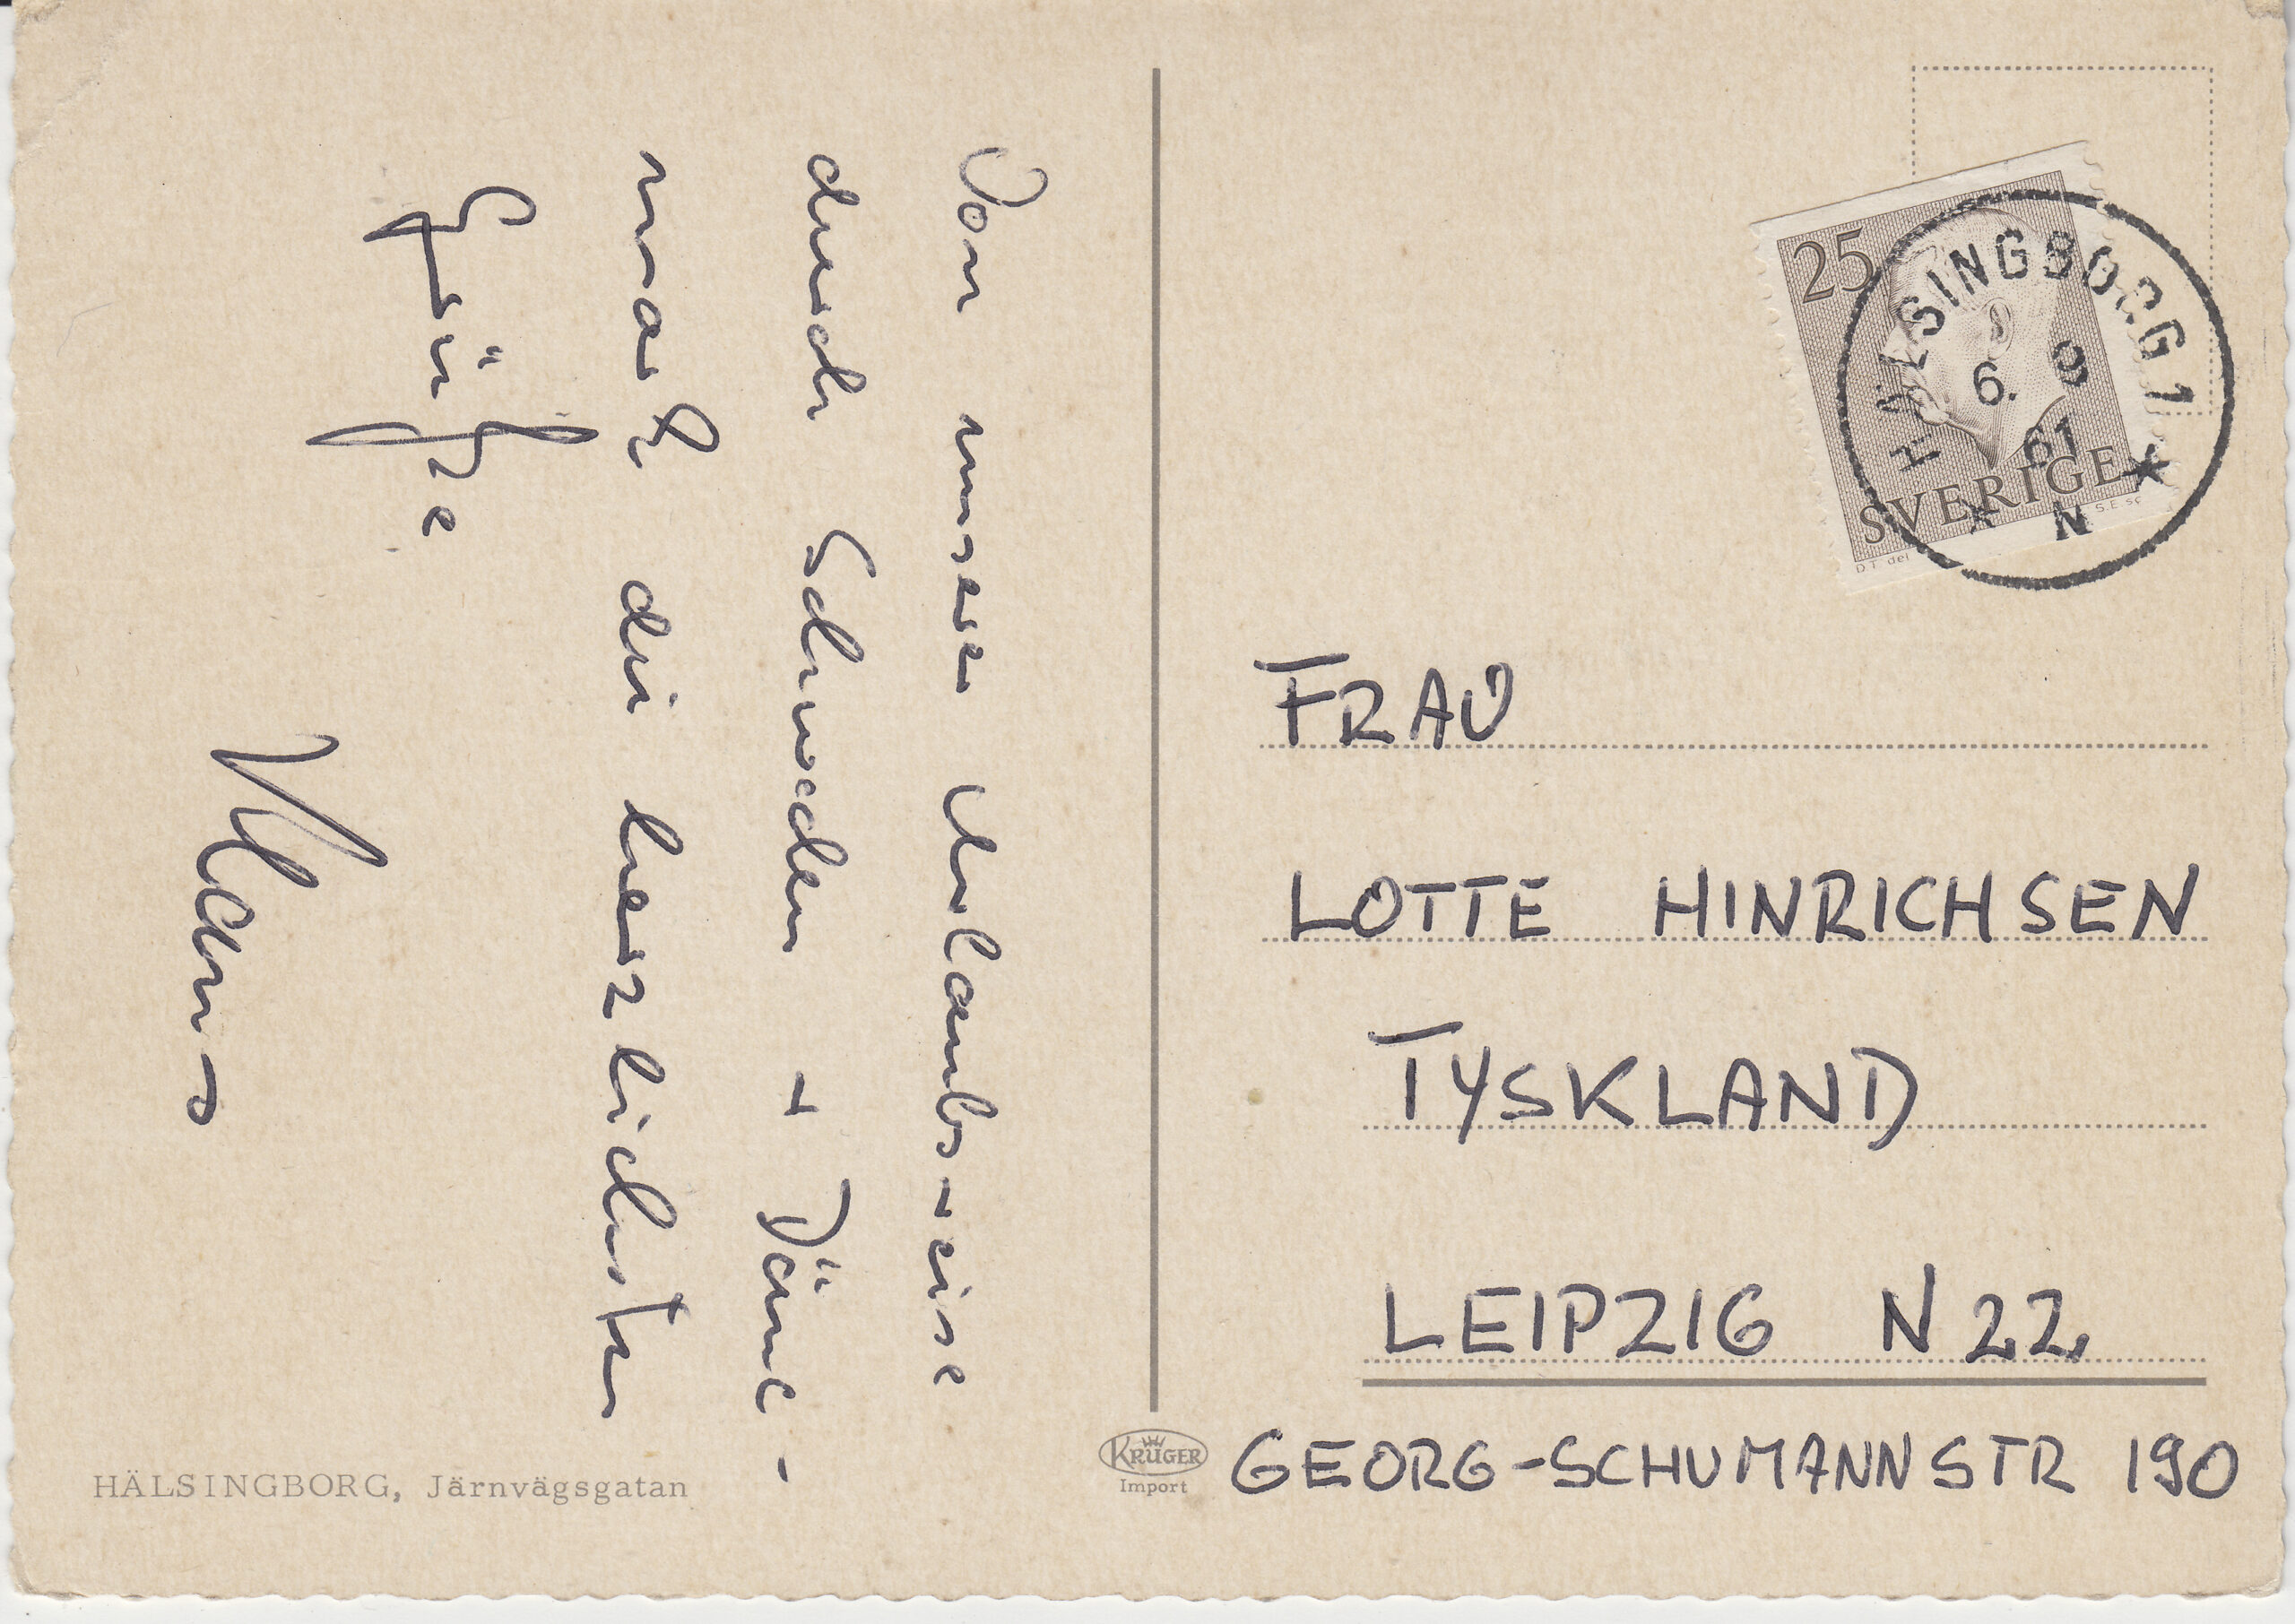 Von unserer Urlaubsreise
durch Schweden + Däne-
mark die herzlichsten
Grüße
Klaus
HÄLSINGBORG, Järnvägsgatan
KRÜGER
Import
25
SVERIGE
D.T del
S.E sc
HÄLSINGBORG 1
6. 9
61
N
FRAU
LOTTE HINRICHSEN
TYSKLAND
LEIPZIG N 22
GEORG-SCHUMANNSTR 190